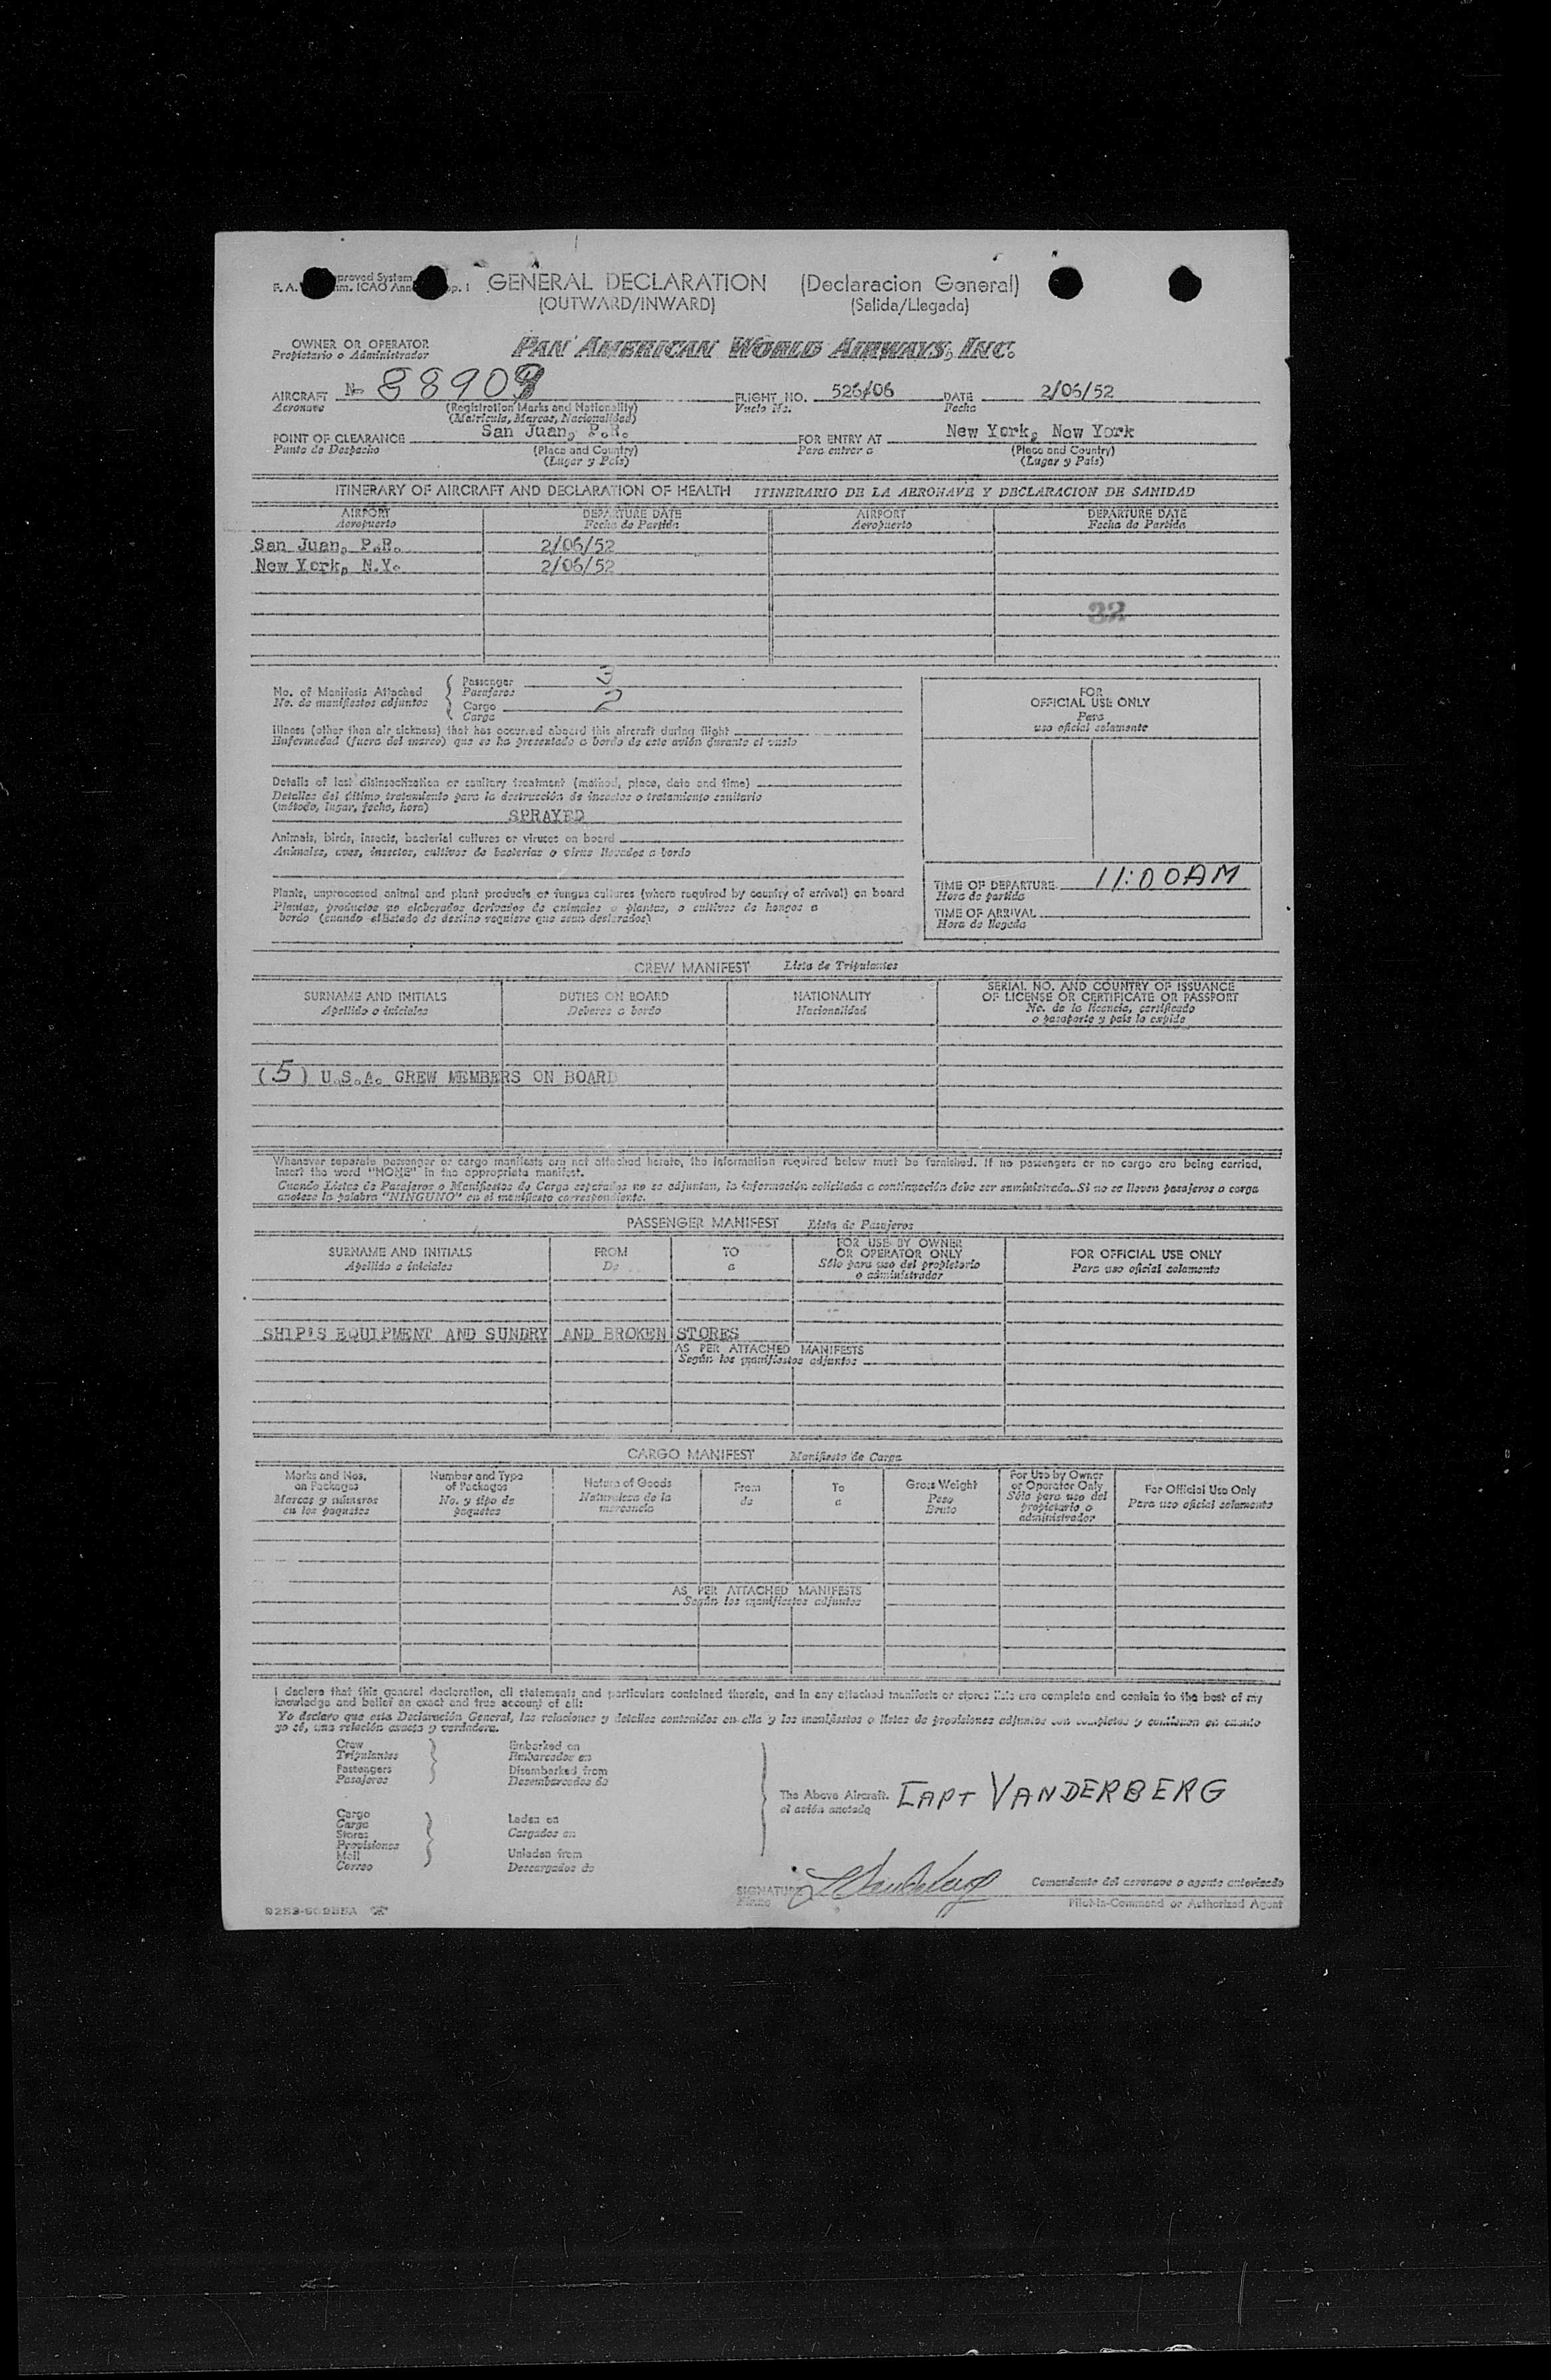 GENERAL DECLARATION (Declaracion General)
(OUTWARD/INWARD) (Salida/Llegada)
OWNER OR OPERATOR PAN AMERICAN WORLD AIRWAYS, INC.
Propietario o Administrador
AIRCRAFT FLIGHT NO. 526/06 DATE 2/06/52
Aeronave (Registration Marks and Nationality) Vuelo No. Fecha
(Matricula, Marcas, Nacionalidad)
POINT OF CLEARANCE San Juan, P.R. FOR ENTRY AT New York, New York
Punto de Despacho (Place and Country) Para entrar a (Place and Country)
(Lugar y País) (Lugar y País)
ITINERARY OF AIRCRAFT AND DECLARATION OF HEALTH ITINERARIO DE LA AERONAVE Y DECLARACION DE SANIDAD
AIRPORT DEPARTURE DATE AIRPORT DEPARTURE DATE
Aeropuerto Fecha de Partida Aeropuerto Fecha de Partida
San Juan, P.R. 2/06/52
New York, N.Y. 2/06/52
32
No. of Manifests Attached Passenger 3
No. de manifiestos adjuntos Pasajeros
Cargo 2
Carga
FOR
OFFICIAL USE ONLY
Para
uso oficial solamente
Illness (other than air sickness) that has occurred aboard this aircraft during flight
Enfermedad (fuera del mareo) que se ha presentado a bordo de este avión durante el vuelo
Details of last disinsectization or sanitary treatment (method, place, date and time)
Detalles del último tratamiento para la destrucción de insectos o tratamiento sanitario
(método, lugar, fecha, hora)
SPRAYED
Animals, birds, insects, bacterial cultures or viruses on board
Animales, aves, insectos, cultivos de bacterias o virus llevados a bordo
Plants, unprocessed animal and plant products or fungus cultures (where required by country of arrival) on board
Plantas, productos no elaborados derivados de animales o plantas, o cultivos de hongos a
bordo (cuando el Estado de destino requiere que sean declarados)
TIME OF DEPARTURE 11:00AM
Hora de partida
TIME OF ARRIVAL
Hora de llegada
CREW MANIFEST Lista de Tripulantes
SURNAME AND INITIALS DUTIES ON BOARD NATIONALITY SERIAL NO. AND COUNTRY OF ISSUANCE
OF LICENSE OR CERTIFICATE OR PASSPORT
Apellido o iniciales Deberes a bordo Nacionalidad No. de la licencia, certificado
o pasaporte y país lo expide
(5) U.S.A. CREW MEMBERS ON BOARD
Whenever separate passenger or cargo manifests are not attached hereto, the information required below must be furnished. If no passengers or no cargo are being carried,
insert the word "NONE" in the appropriate manifest.
Cuando Listas de Pasajeros o Manifiestos de Carga separados no se adjuntan, la información solicitada a continuación debe ser suministrada. Si no se llevan pasajeros o carga
anotese la palabra "NINGUNO" en el manifiesto correspondiente.
PASSENGER MANIFEST Lista de Pasajeros
SURNAME AND INITIALS FROM TO FOR USE BY OWNER
OR OPERATOR ONLY FOR OFFICIAL USE ONLY
Apellido e iniciales De a Sólo para uso del propietario
o administrador Para uso oficial solamente
SHIP'S EQUIPMENT AND SUNDRY AND BROKEN STORES
AS PER ATTACHED MANIFESTS
Según los manifiestos adjuntos
CARGO MANIFEST Manifiesto de Carga
Marks and Nos. on Packages Number and Type of Packages Nature of Goods From To Gross Weight For Use by Owner or Operator Only For Official Use Only
Marcas y números en los paquetes No. y tipo de paquetes Naturaleza de la mercancia de a Peso Bruto Sólo para uso del propietario o administrador Para uso oficial solamente
AS PER ATTACHED MANIFESTS
Según los manifiestos adjuntos
I declare that this general declaration, all statements and particulars contained therein, and in any attached manifests or stores lists are complete and contain to the best of my
knowledge and belief an exact and true account of all:
Yo declaro que esta Declaración General, las relaciones y detalles contenidos en ella y los manifiestos o listas de provisiones adjuntos son completos y contienen en cuanto
yo sé, una relación exacta y verdadera.
Crew Embarked on
Tripulantes Embarcados en
Passengers Disembarked from
Pasajeros Desembarcados de
The Above Aircraft. CAPT VANDERBERG
el avión anotado
Cargo Laden on
Carga Cargados en
Stores
Provisiones
Mail Unladen from
Correo Descargados de
SIGNATURE Comandante del aeronave o agente autorizado
Firma Pilot-in-Command or Authorized Agent